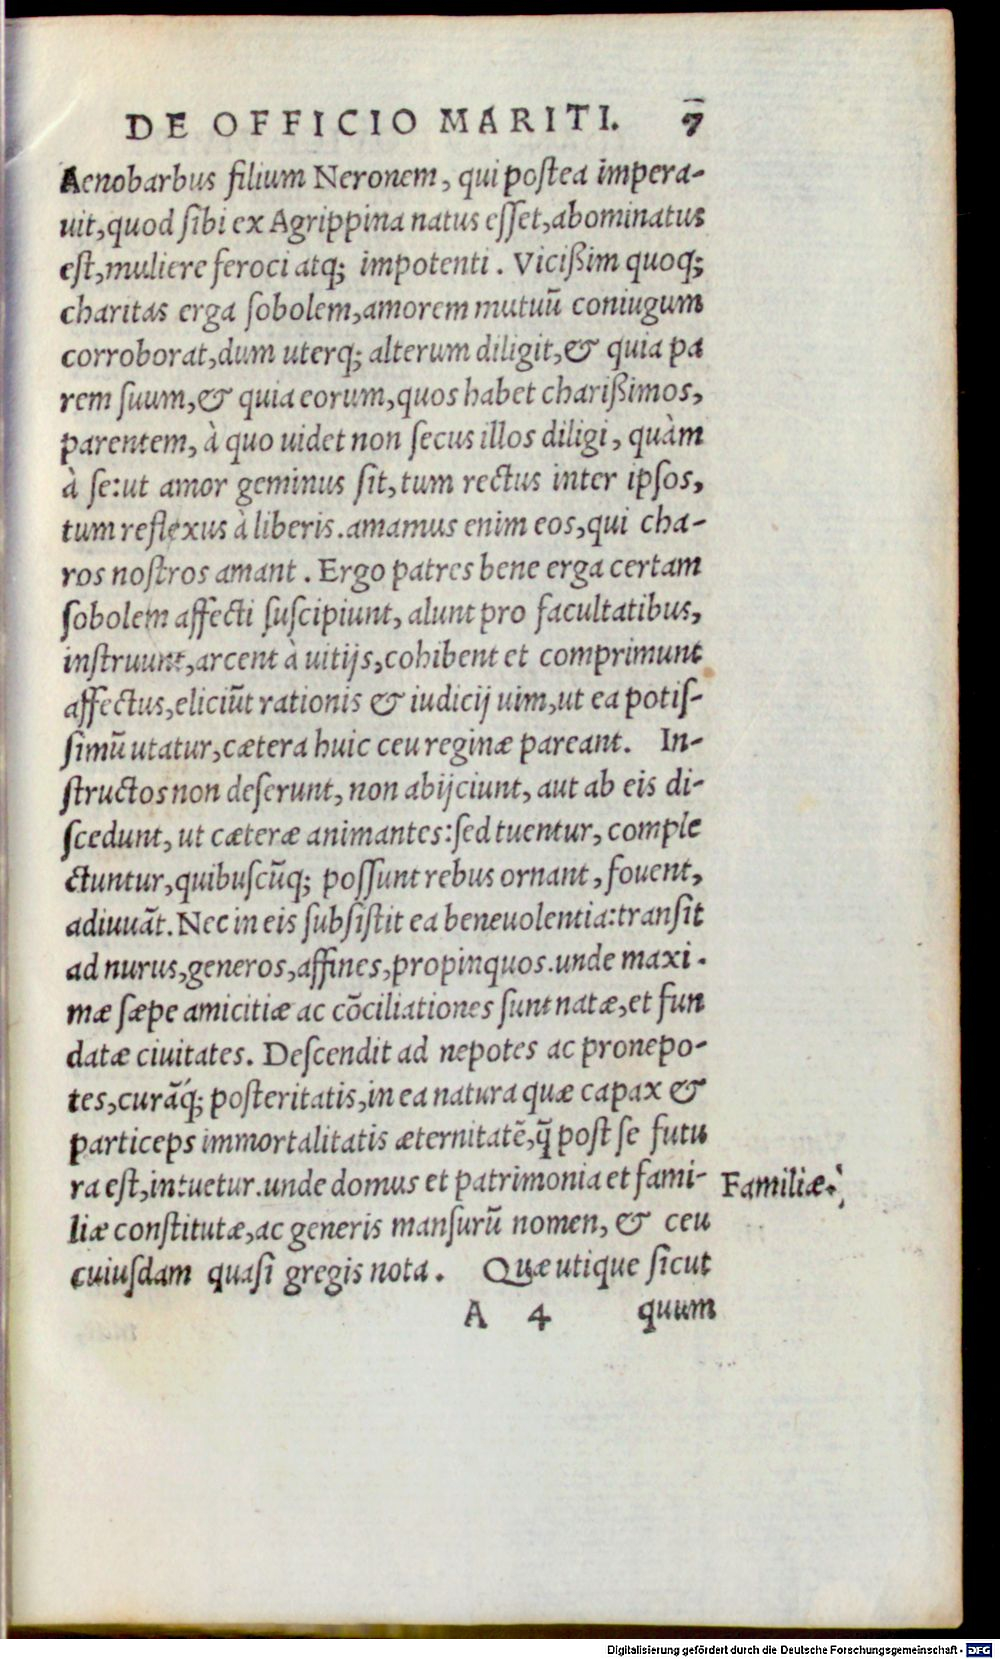 DE OFFICIO MARITI. 7
Aenobarbus filium Neronem, qui postea impera-
uit,quod sibi ex Agrippina natus esset,abominatus
est,muliere feroci atq; impotenti. Vicißim quoq;
charitas erga sobolem,amorem mutuū coniugum
corroborat,dum uterq; alterum diligit,& quia pa
rem suum,& quia eorum,quos habet charißimos,
parentem, à quo uidet non secus illos diligi, quàm
à se:ut amor geminus sit,tum rectus inter ipsos,
tum reflexus à liberis.amamus enim eos,qui cha-
ros nostros amant. Ergo patres bene erga certam
sobolem affecti suscipiunt, alunt pro facultatibus,
instruunt,arcent à uitijs,cohibent et comprimunt
affectus,eliciūt rationis & iudicij uim,ut ea potis-
simū utatur,cætera huic ceu reginæ pareant. In-
structos non deserunt, non abijciunt, aut ab eis di-
scedunt, ut cæteræ animantes:sed tuentur, comple
ctuntur,quibuscūq; possunt rebus ornant, fouent,
adiuuāt. Nec in eis subsistit ea beneuolentia:transit
ad nurus,generos,affines,propinquos.unde maxi-
mæ sæpe amicitiæ ac cōciliationes sunt natæ,et fun
datæ ciuitates. Descendit ad nepotes ac pronepo-
tes,curāq́; posteritatis,in ea natura quæ capax &
particeps immortalitatis æternitatē,q̄ post se futu
ra est,intuetur.unde domus et patrimonia et fami-
liæ constitutæ,ac generis mansurū nomen, & ceu
cuiusdam quasi gregis nota. Quæ utique sicut
Familiæ.
A 4 quum
Digitalisierung gefördert durch die Deutsche Forschungsgemeinschaft - DFG